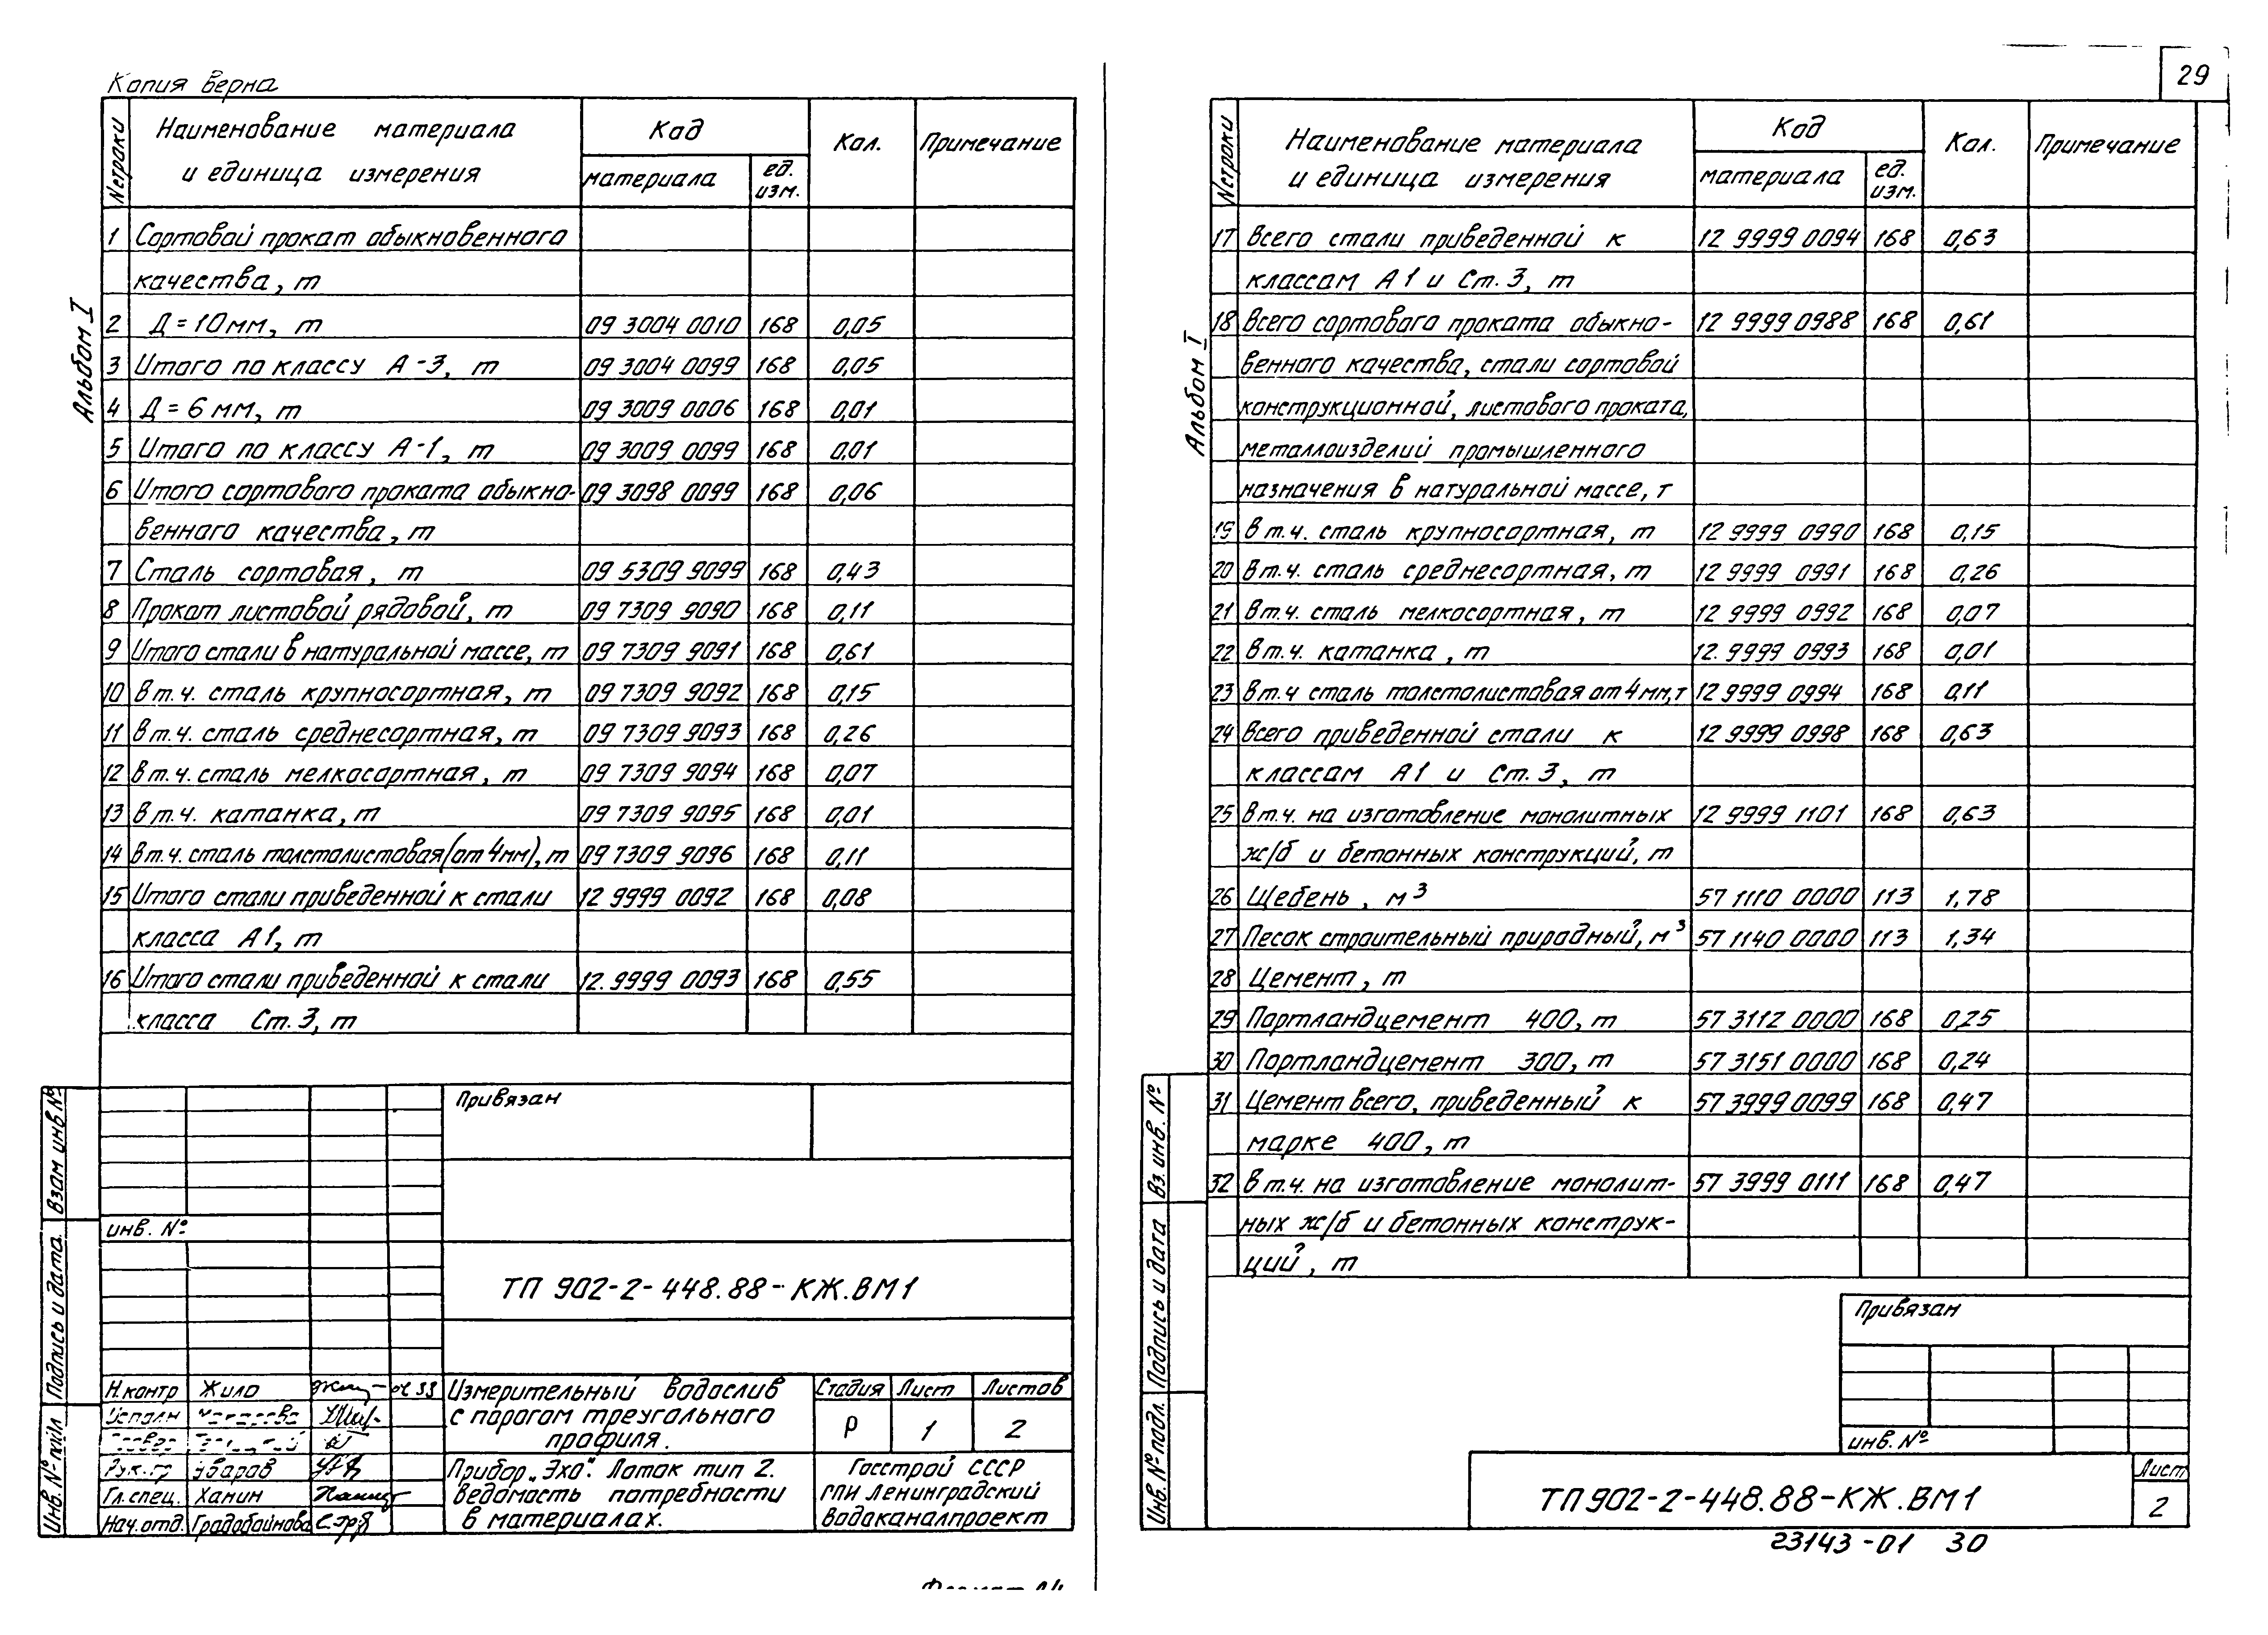 Копия верна
Альбом I
№ строки
Наименование материала
и единица измерения
Код
материала
ед.
изм.
Кол.
Примечание
1 Сортовой прокат обыкновенного
качества, т
2 Д=10мм, т 09 3004 0010 168 0,05
3 Итого по классу А-3, т 09 3004 0099 168 0,05
4 Д=6мм, т 09 3009 0006 168 0,01
5 Итого по классу А-1, т 09 3009 0099 168 0,01
6 Итого сортового проката обыкно- 09 3098 0099 168 0,06
венного качества, т
7 Сталь сортовая, т 09 5309 9099 168 0,43
8 Прокат листовой рядовой, т 09 7309 9090 168 0,11
9 Итого стали в натуральной массе, т 09 7309 9091 168 0,61
10 В т.ч. сталь крупносортная, т 09 7309 9092 168 0,15
11 В т.ч. сталь среднесортная, т 09 7309 9093 168 0,26
12 В т.ч. сталь мелкосортная, т 09 7309 9094 168 0,07
13 В т.ч. катанка, т 09 7309 9095 168 0,01
14 В т.ч. сталь толстолистовая (от 4мм), т 09 7309 9096 168 0,11
15 Итого стали приведенной к стали 12 9999 0092 168 0,08
класса А1, т
16 Итого стали приведенной к стали 12. 9999 0093 168 0,55
класса Ст.3, т
Привязан
инв. №
ТП 902-2-448.88-КЖ.ВМ1
Н.контр Жило
Исполн
Рук.гр Уваров
Гл.спец. Ханин
Нач.отд. Градобойнова
Измерительный водослив
с порогом треугольного
профиля.
Стадия Лист Листов
Р 1 2
Прибор „Эхо". Лоток тип 2.
Ведомость потребности
в материалах.
Госстрой СССР
ГПИ Ленинградский
Водоканалпроект
Взам инв №
Подпись и дата.
Инв. № подл
29
Альбом I
№ строки
Наименование материала
и единица измерения
Код
материала
ед.
изм.
Кол.
Примечание
17 Всего стали приведенной к 12 9999 0094 168 0,63
классам А1 и Ст.3, т
18 Всего сортового проката обыкно- 12 9999 0988 168 0,61
венного качества, стали сортовой
конструкционной, листового проката,
металлоизделий промышленного
назначения в натуральной массе, т
19 В т.ч. сталь крупносортная, т 12 9999 0990 168 0,15
20 В т.ч. сталь среднесортная, т 12 9999 0991 168 0,26
21 В т.ч. сталь мелкосортная, т 12 9999 0992 168 0,07
22 В т.ч. катанка, т 12. 9999 0993 168 0,01
23 В т.ч сталь толстолистовая от 4 мм, т 12 9999 0994 168 0,11
24 Всего приведенной стали к 12 9999 0998 168 0,63
классам А1 и Ст.3, т
25 В т.ч. на изготовление монолитных 12 9999 1101 168 0,63
ж/б и бетонных конструкций, т
26 Щебень, м³ 57 1110 0000 113 1,78
27 Песок строительный природный, м³ 57 1140 0000 113 1,34
28 Цемент, т
29 Портландцемент 400, т 57 3112 0000 168 0,25
30 Портландцемент 300, т 57 3151 0000 168 0,24
31 Цемент всего, приведенный к 57 3999 0099 168 0,47
марке 400, т
32 В т.ч. на изготовление монолит- 57 3999 0111 168 0,47
ных ж/б и бетонных конструк-
ций, т
Привязан
инв. №
ТП 902-2-448.88-КЖ.ВМ1
Лист
2
Вз. инв. №
Подпись и дата
Инв. № подл.
23143-01 30